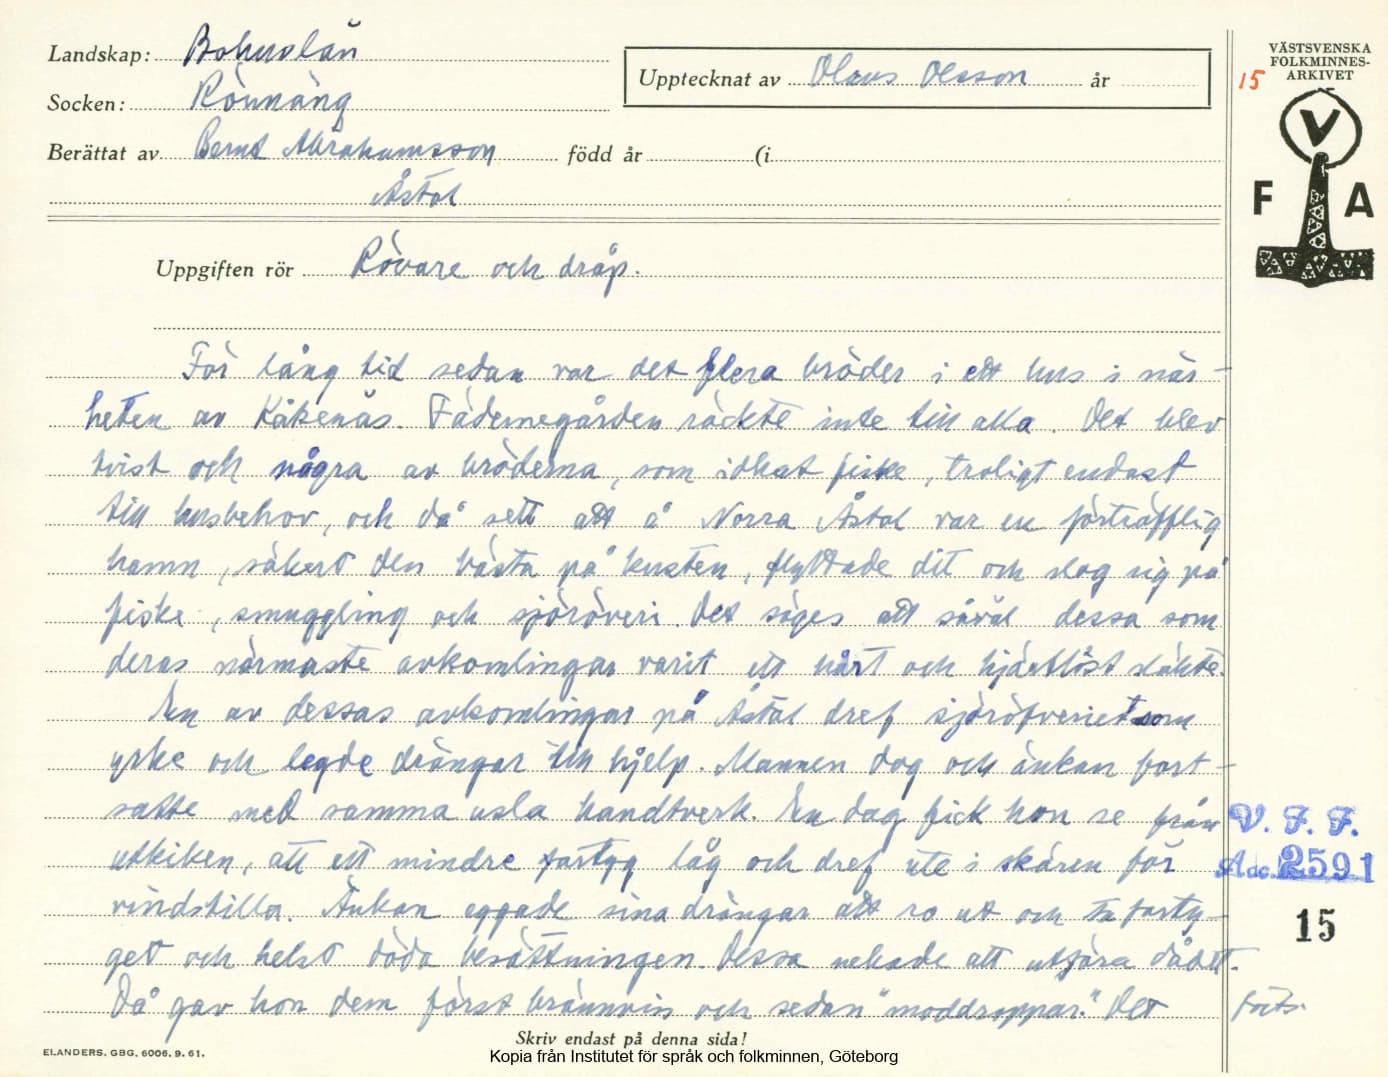 Landskap: Bohuslän
Socken: Rönnäng
Berättat av Bernt Abrahamsson född år (i
Åstol
Upptecknat av Olaus Olsson år
15
VÄSTSVENSKA
FOLKMINNES-
ARKIVET
V
F A
Uppgiften rör Rövare och dråp.
För lång tid sedan var det flera bröder i ett hus i när-
heten av Kåkenäs. Fädernegården räckte inte till alla. Det blev
tvist och några av bröderna, som idkat fiske, troligt endast
till husbehov, och då sett att å Norra Åstol var en förträfflig
hamn, säkert den bästa på kusten, flyttade dit och slog sig på
fiske, smuggling och sjöröveri. Det säges att såväl dessa som
deras närmaste avkomlingar varit ett hårt och hjärtlöst släkte.
En av dessas avkomlingar på Åstol dref sjöröfveriet som
yrke och legde drängar till hjelp. Mannen dog och änkan fort-
satte med samma usla handtverk. En dag fick hon se från
utkiken, att ett mindre fartyg låg och dref ute i skären för
vindstilla. Änkan eggade sina drängar att ro ut och ta farty-
get och helst döda besättningen. Dessa nekade att utföra dådet.
Då gav hon dem först brännvin och sedan "moddroppar." Det
forts.
V. F. F.
Acc. 2591
15
Skriv endast på denna sida!
ELANDERS. GBG. 6006. 9. 61.
Kopia från Institutet för språk och folkminnen, Göteborg